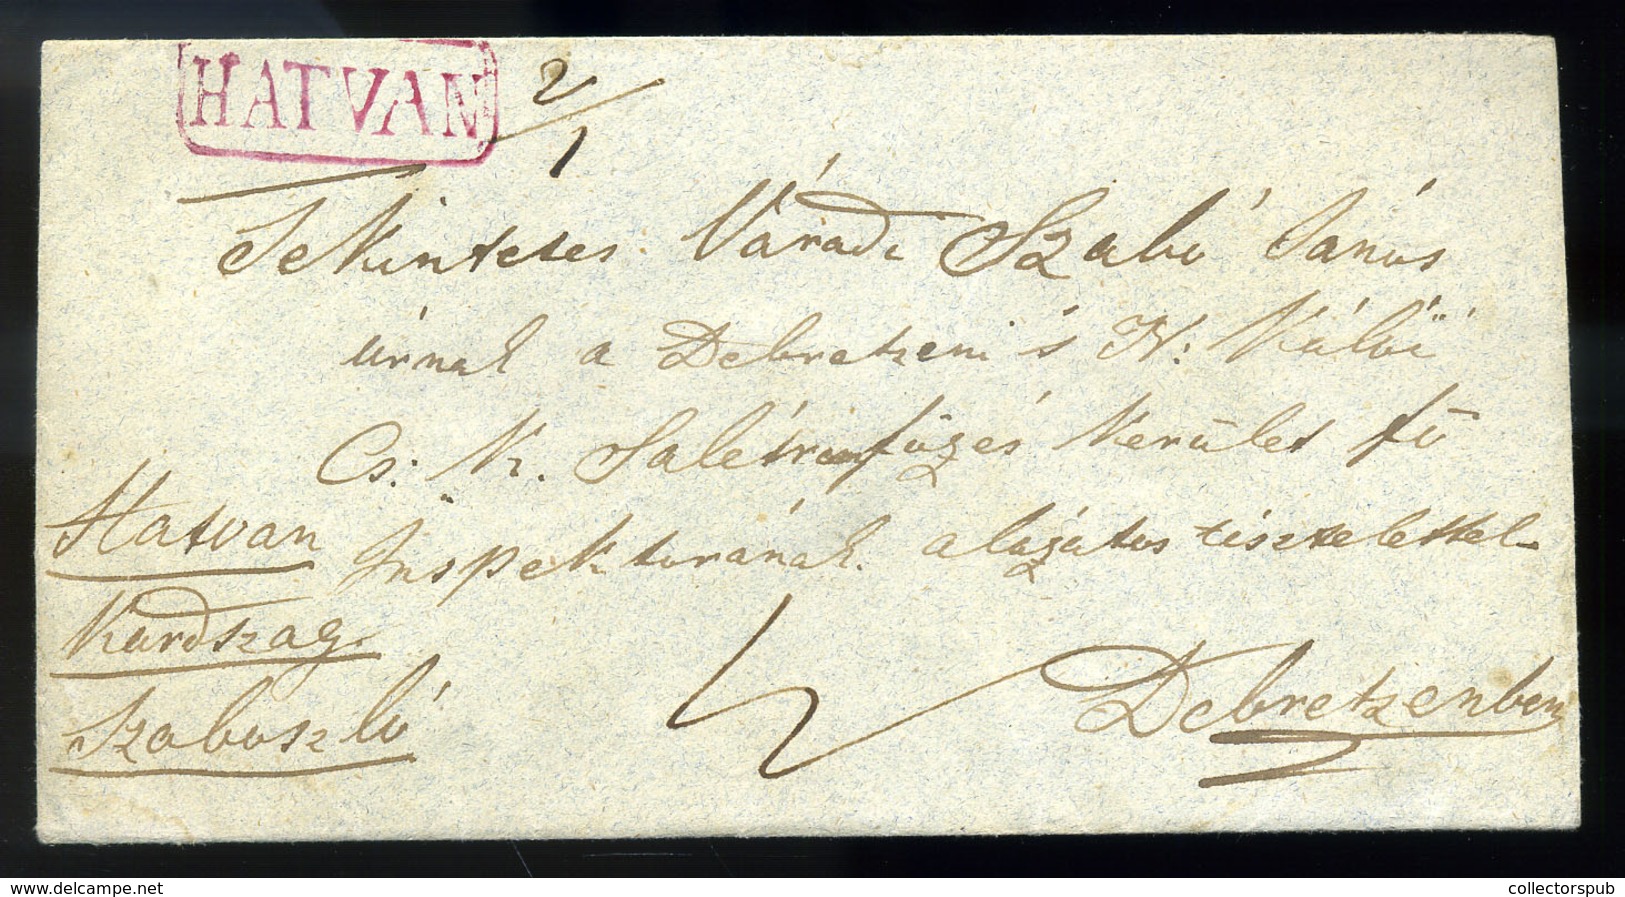 HATVAN
2/1
Tekintetes Váradi Szabó János
úrnak a Debretzeni s N: Kálói
Cs: K. Salétromfőzés Kerület fő
Inspektorának alázatos tisztelettel
Hatvan
Kardszag.
Szaboszló
Debretzenben
www.delcampe.net
collectorspub